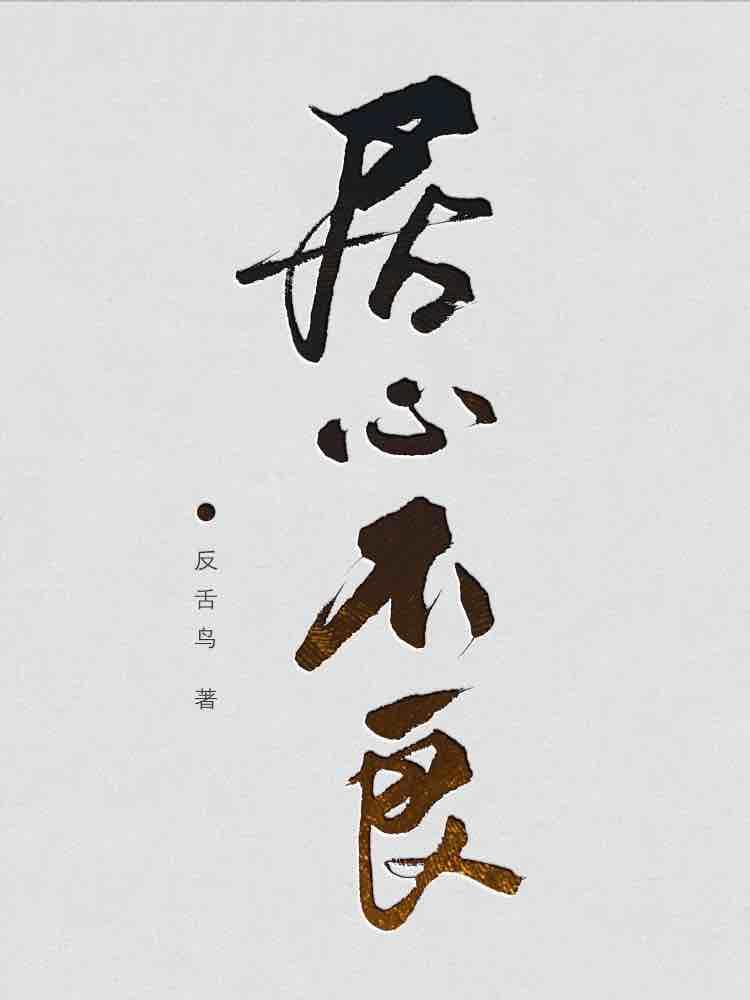 居心不良
反舌鸟 著